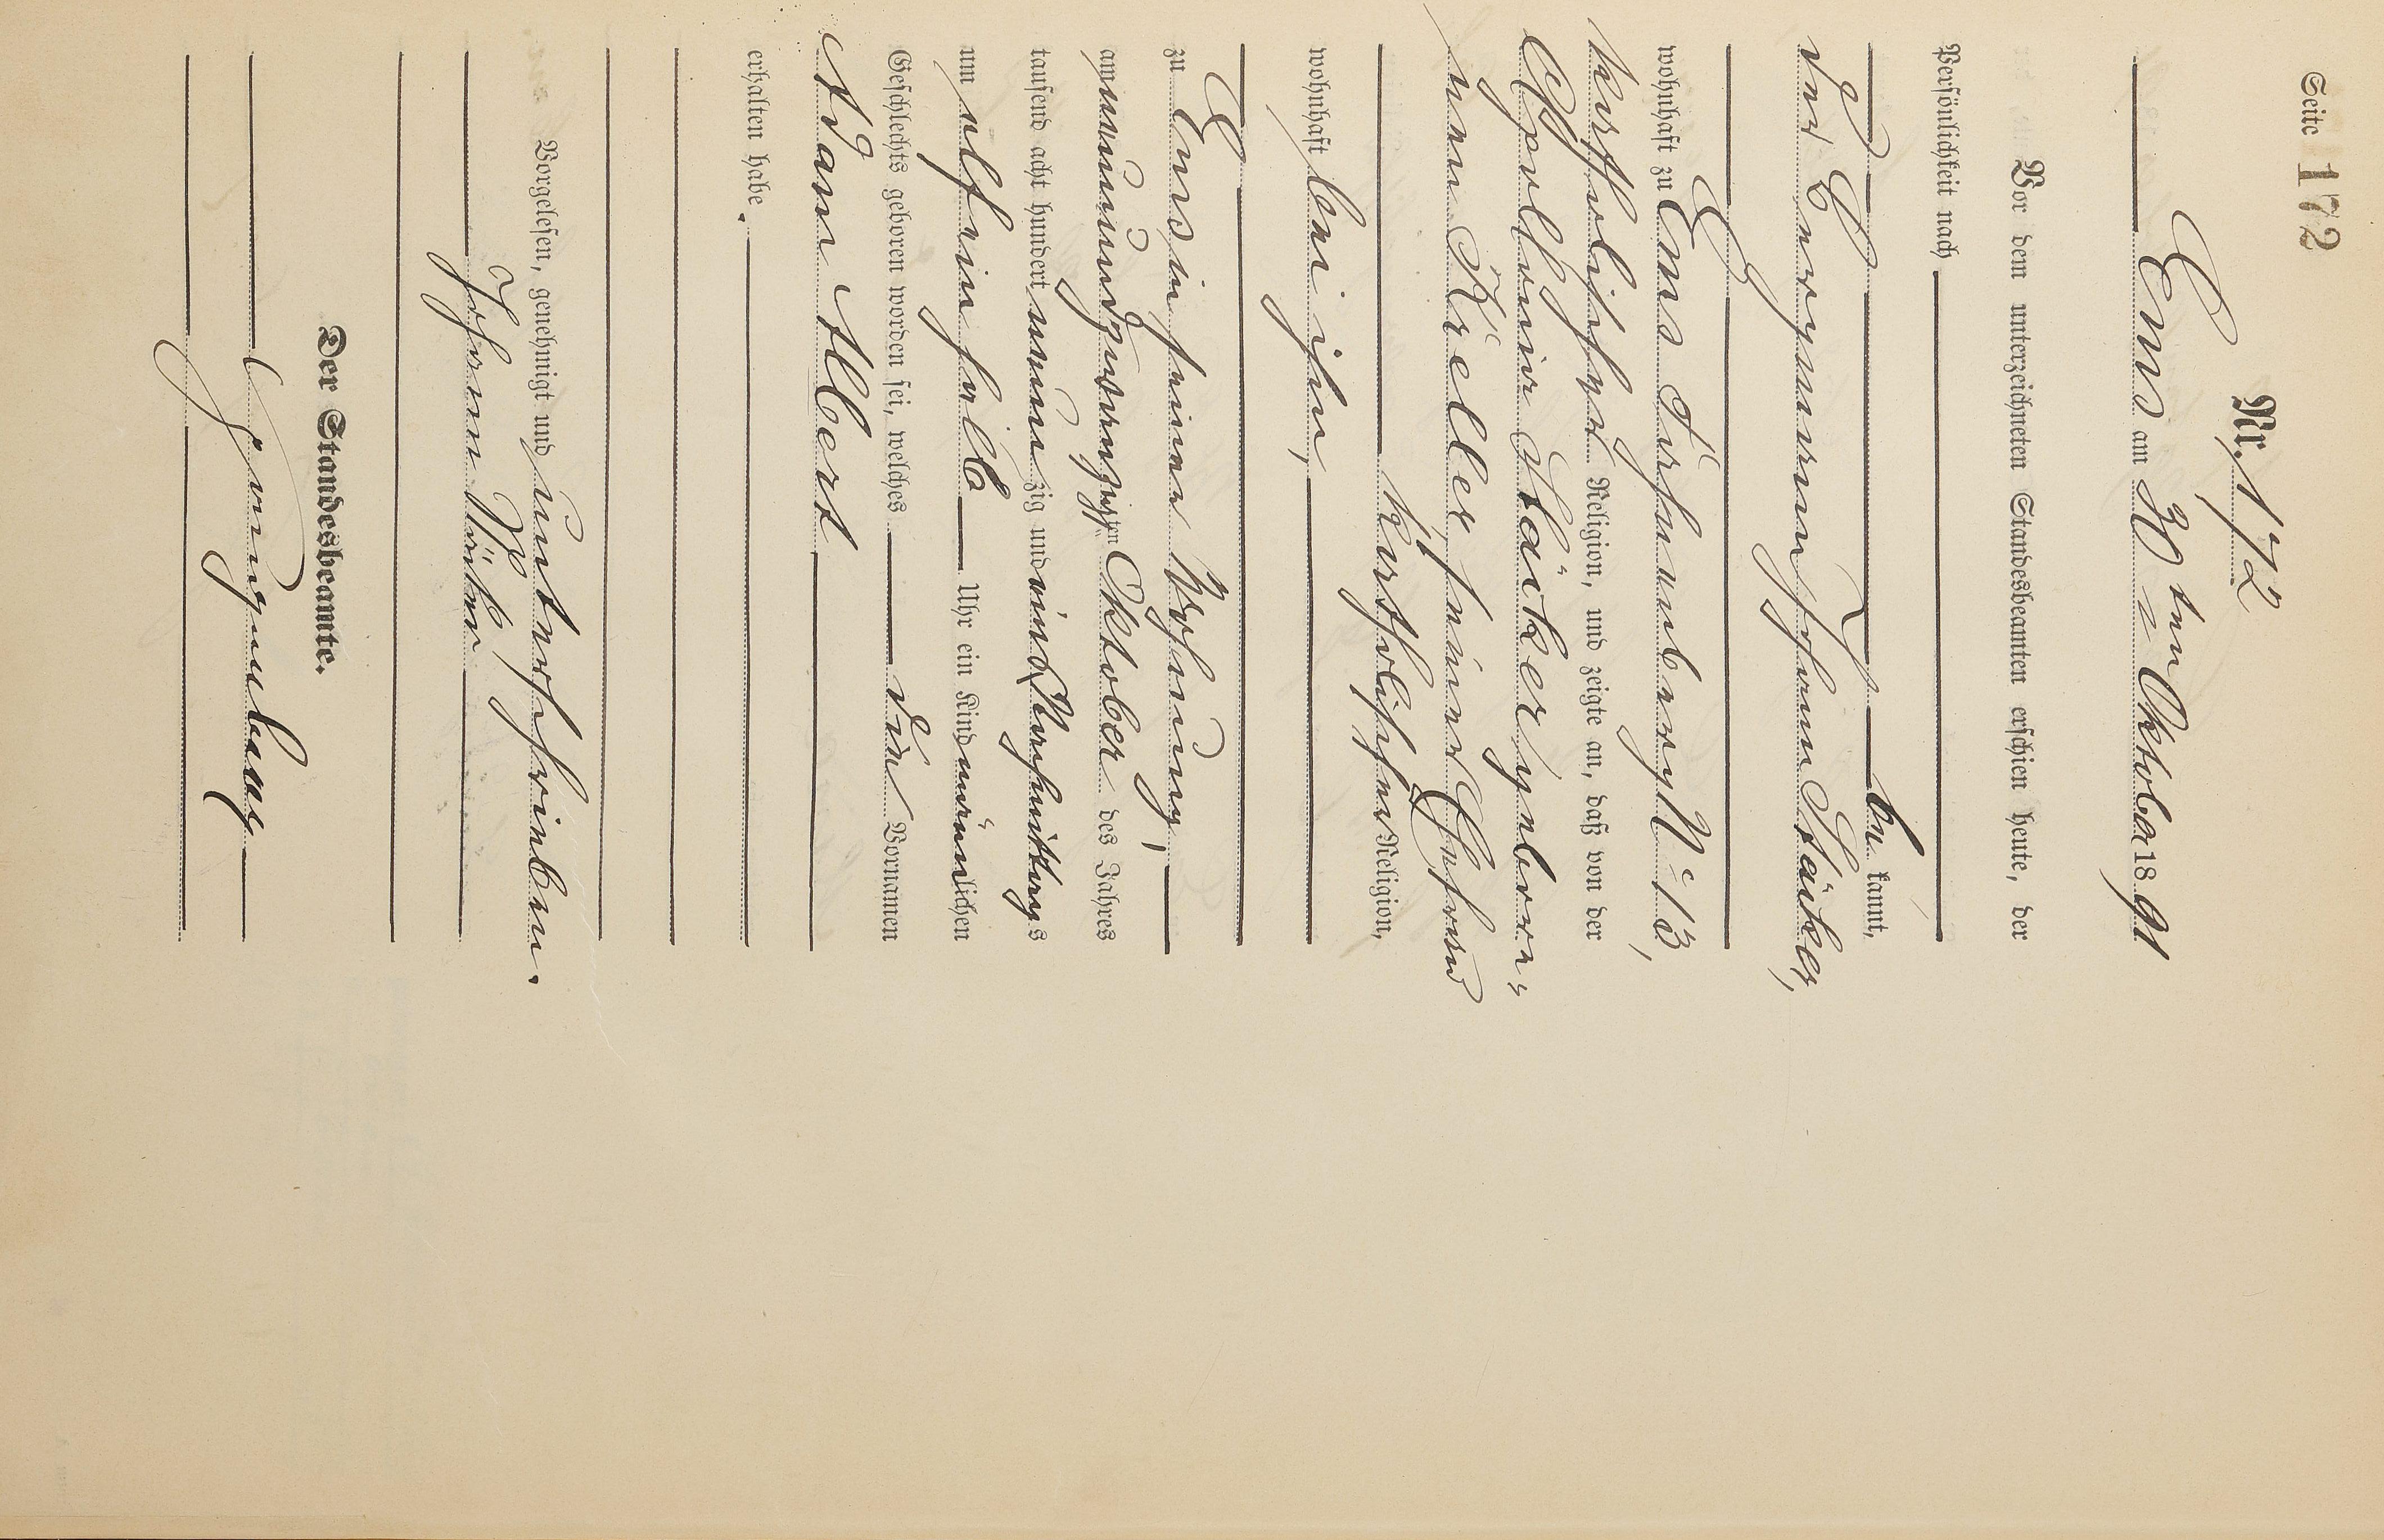 Seite 172
Nr. 172
Ems am 30 ten Oktober 18 91
Vor dem unterzeichneten Standesbeamten erschien heute, der
Persönlichkeit nach
be kannt,
der Bergmann Johann Stäcker,
wohnhaft zu Ems Fahnenberg No 13,
katholischer Religion, und zeigte an, daß von der
Apollonia Stäcker gebore=
nen Kreller, seiner Ehefrau
katholischer Religion,
wohnhaft bei ihm,
zu Ems in seiner Wohnung,
am neunundzwanzigsten Oktober des Jahres
tausend acht hundert neunzig und eins Nachmittags
um elfeinhalb Uhr ein Kind männlichen
Geschlechts geboren worden sei, welches die Vornamen
Adam Albert
erhalten habe.
Vorgelesen, genehmigt und unterschrieben.
Johann
Der Standesbeamte.